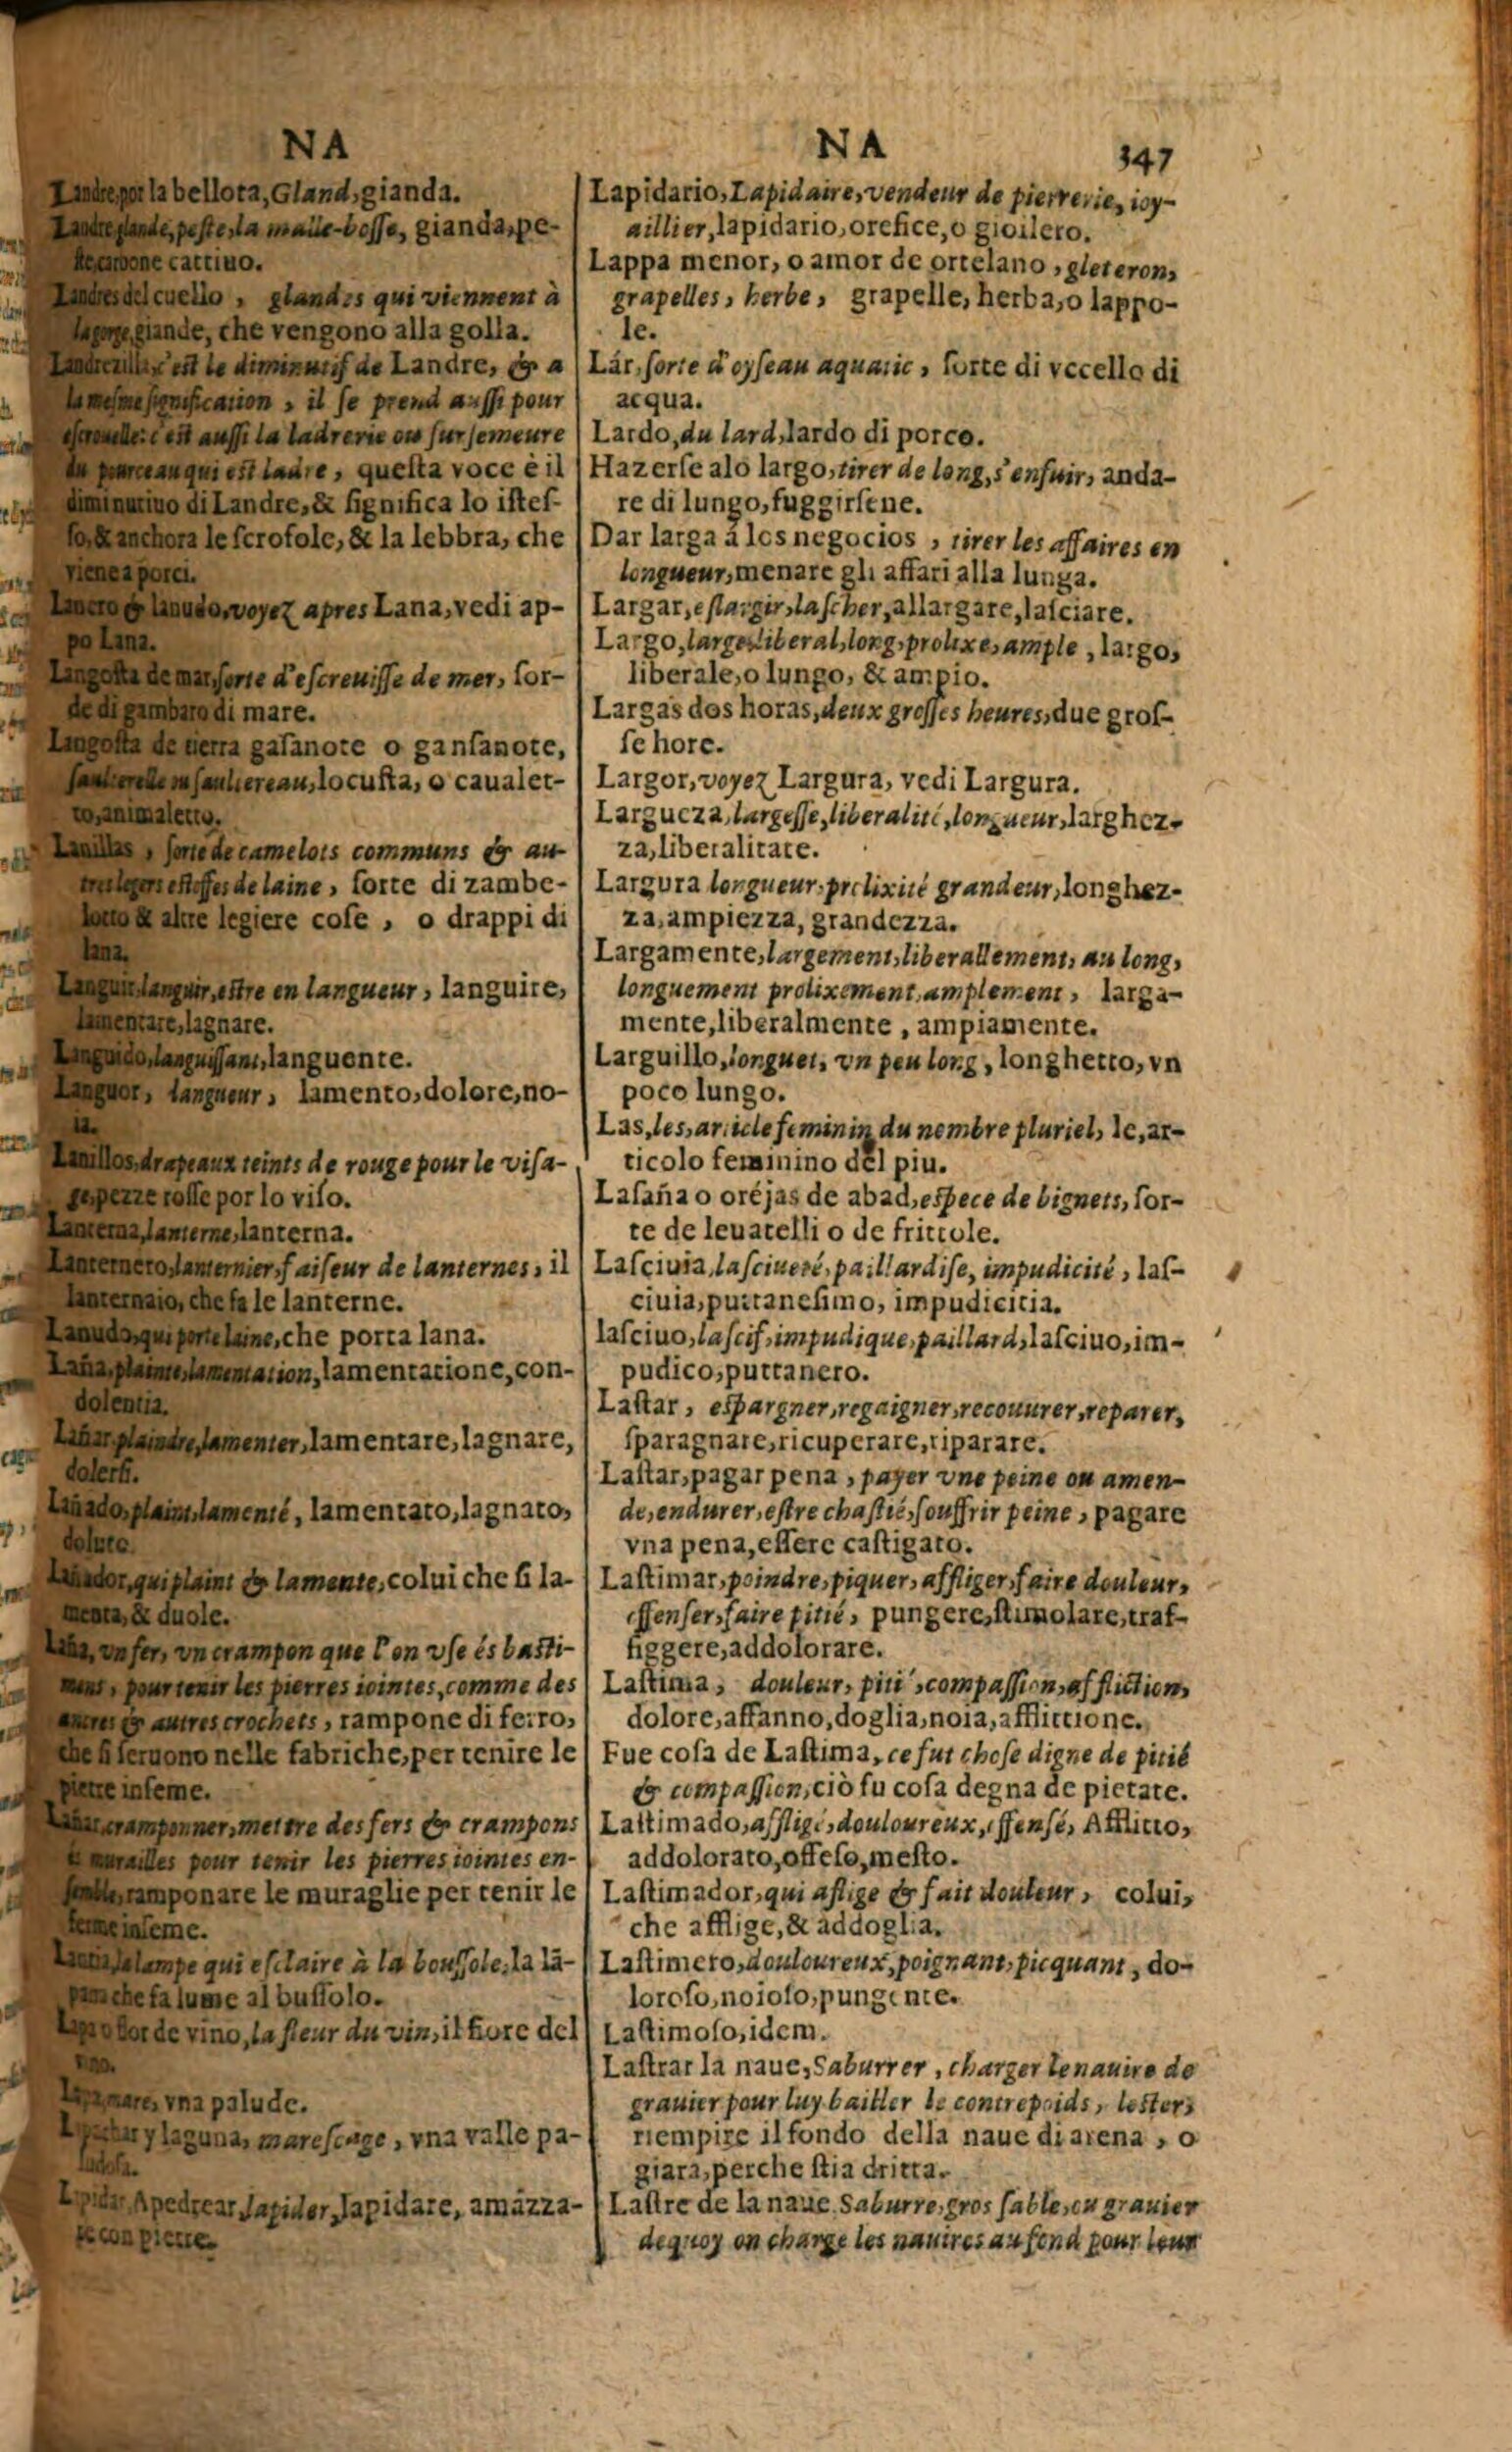 NA
Landre, por la bellota, Gland, gianda.
Landre glande, peste, la malle-bosse, gianda, pe-
ste, carbone cattiuo.
Landres del cuello, glandes qui viennent à
la gorge, giande, che vengono alla golla.
Landrezilla, c'est le diminutif de Landre, & a
la mesme signification, il se prend aussi pour
escrouelle: c'est aussi la ladrerie ou sursemeure
du pourceau qui est ladre, questa voce è il
diminutiuo di Landre, & significa lo istes-
so, & anchora le scrofole, & la lebbra, che
viene a porci.
Lanero & lanudo, voyez apres Lana, vedi ap-
po Lana.
Langosta de mar, sorte d'escreuisse de mer, sor-
de di gambaro di mare.
Langosta de tierra gasanote o gansanote,
saulterelle ou saultereau, locusta, o caualet-
to, animaletto.
Lanillas, sorte de camelots communs & au-
tres legers estoffes de laine, sorte di zambe-
lotto & altre legiere cose, o drappi di
lana.
Languir, languir, estre en langueur, languire,
lamentare, lagnare.
Languido, languissant, languente.
Languor, langueur, lamento, dolore, no-
ia.
Lanillos, drapeaux teints de rouge pour le visa-
ge, pezze rosse por lo viso.
Lanterna, lanterne, lanterna.
Lanternero, lanternier, faiseur de lanternes, il
lanternaio, che fa le lanterne.
Lanudo, qui porte laine, che porta lana.
Laña, plainte, lamentation, lamentatione, con-
dolentia.
Lañar, plaindre, lamenter, lamentare, lagnare,
dolersi.
Lañado, plaint, lamenté, lamentato, lagnato,
doluto.
Lañador, qui plaint & lamente, colui che si la-
menta, & duole.
Laña, vn fer, vn crampon que l'on vse és basti-
mens, pour tenir les pierres iointes, comme des
ancres & autres crochets, rampone di ferro,
che si seruono nelle fabriche, per tenire le
pietre inseme.
Lañar, cramponner, mettre des fers & crampons
és murailles pour tenir les pierres iointes en-
semble, ramponare le muraglie per tenir le
ferme inseme.
la lampe qui esclaire à la boussole, la lā-
pana che fa lume al bussolo.
Lapa o flor de vino, la fleur du vin, il fiore del
vino.
mare, vna palude.
y laguna, marescage, vna valle pa-
ludosa.
Lapidar, Apedrear, lapider, lapidare, amàzza-
re con pietre.
NA 347
Lapidario, Lapidaire, vendeur de pierrerie, ioy-
aillier, lapidario, orefice, o gioilero.
Lappa menor, o amor de ortelano, gleteron,
grapelles, herbe, grapelle, herba, o lappo-
le.
Lár, sorte d'oyseau aquatic, sorte di vccello di
acqua.
Lardo, du lard, lardo di porco.
Hazerse alo largo, tirer de long, s'enfuir, anda-
re di lungo, fuggirsene.
Dar larga á los negocios, tirer les affaires en
longueur, menare gli affari alla lunga.
Largar, eslargir, lascher, allargare, lasciare.
Largo, large, liberal, long, prolixe, ample, largo,
liberale, o lungo, & ampio.
Largas dos horas, deux grosses heures, due gros-
se hore.
Largor, voyez Largura, vedi Largura.
Largueza, largesse, liberalité, longueur, larghez-
za, liberalitate.
Largura longueur, prolixité grandeur, longhez-
za, ampiezza, grandezza.
Largamente, largement, liberallement, au long,
longuement prolixement, amplement, larga-
mente, liberalmente, ampiamente.
Larguillo, longuet, vn peu long, longhetto, vn
poco lungo.
Las, les, article feminin du nombre pluriel, le, ar-
ticolo feminino del piu.
Lasaña o oréjas de abad, espece de bignets, sor-
te de leuatelli o de frittole.
Lasciuia, lasciueté, paillardise, impudicité, las-
ciuia, puttanesimo, impudicitia.
lasciuo, lascif, impudique, paillard, lasciuo, im-
pudico, puttanero.
Lastar, espargner, regaigner, recouurer, reparer,
sparagnare, ricuperare, riparare.
Lastar, pagar pena, payer vne peine ou amen-
de, endurer, estre chastié, souffrir peine, pagare
vna pena, essere castigato.
Lastimar, poindre, piquer, affliger, faire douleur,
offenser, faire pitié, pungere, stimolare, traf-
figgere, addolorare.
Lastima, douleur, pitié, compassion, affliction,
dolore, affanno, doglia, noia, afflictione.
Fue cosa de Lastima, ce fut chose digne de pitié
& compassion, ciò fu cosa degna de pietate.
Lastimado, affligé, douloureux, offensé, Afflitto,
addolorato, offeso, mesto.
Lastimador, qui aflige & fait douleur, colui,
che afflige, & addoglia.
Lastimero, douloureux, poignant, picquant, do-
loroso, noioso, pungente.
Lastimoso, idem.
Lastrar la naue, Saburrer, charger le nauire de
grauier pour luy bailler le contrepoids, lester,
riempire il fondo della naue di arena, o
giara, perche stia dritta.
Lastre de la naue. Saburre, gros sable, ou grauier
dequoy on charge les nauires au fond pour leur